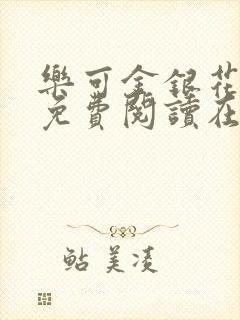 樂可金銀花
免費閱讀在
鲇美凌